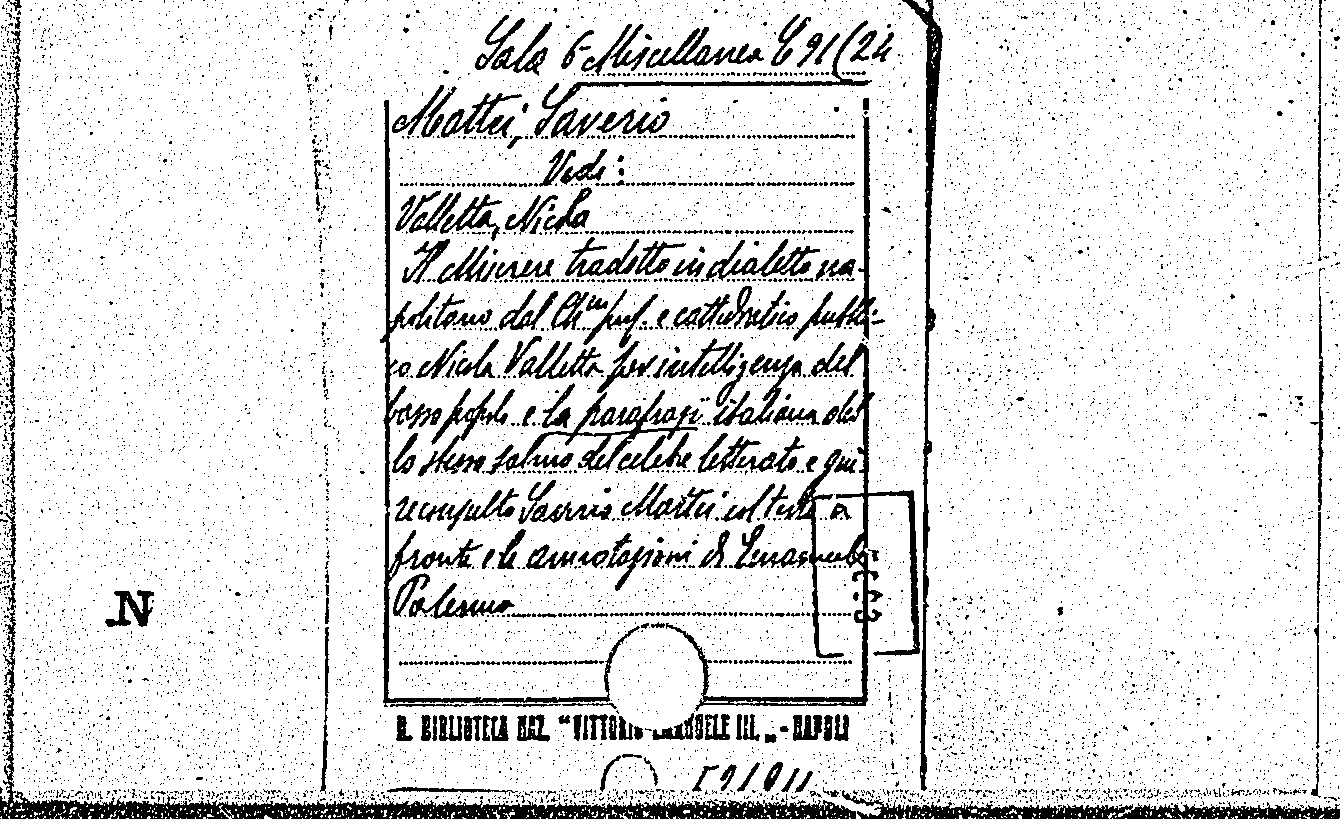 Sala 6 Miscellanea C 91 (24
Mattei, Saverio
Vedi:
Valletta, Nicola
Il Miserere tradotto in dialetto na-
politano dal Ch.mo prof. e cattedratico pubbli-
co Nicola Valletta per intelligenza del
basso popolo e la parafrasi italiana del
lo stesso salmo del celebre letterato e giu-
reconsulto Saverio Mattei col testo a
fronte e le annotazioni di
Palermo
N
R. BIBLIOTECA NAZ. "VITTORIO EMANUELE III. „ - NAPOLI